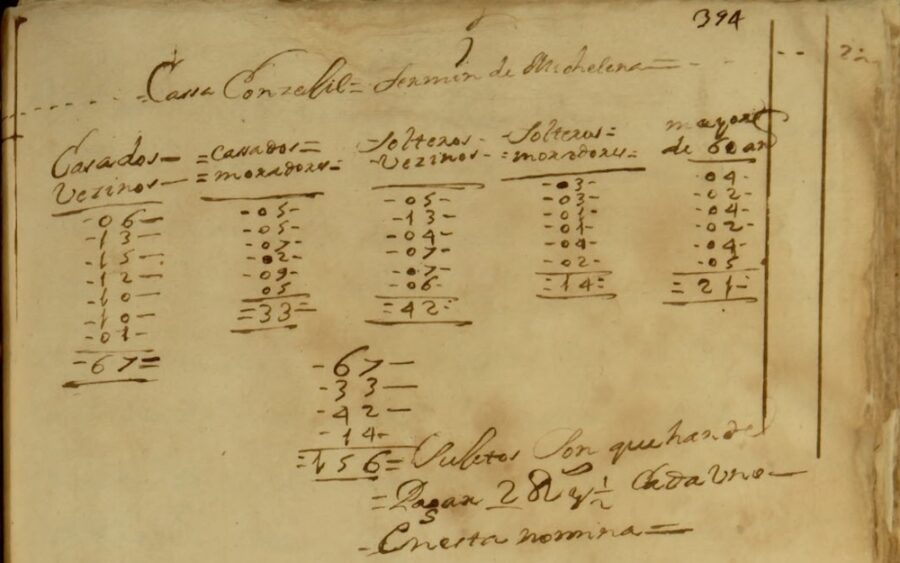 394
Cassa Conzegil = Fermin de Michelena =
Casados – =Cassados = Solteros - - Solteros = mayores
Vezinos – = moradores = - Vezinos - = moradores = de 60 añ
-06- -05- -05- -03- -04-
-13- -05- -13- -03- -02-
-15- -07- -04- -01- -04-
-12- -02- -07- -01- -02-
-10- -09- -07- -04- -04-
-10- 05 -06- -02- -05-
-01- =33= =42= =14= =21=
-67=
-67-
-33-
-42-
-14-
=156= Sujetos Son que han de
= Pagar 2 Rs y ½ Cada Uno –
- En esta nomina =